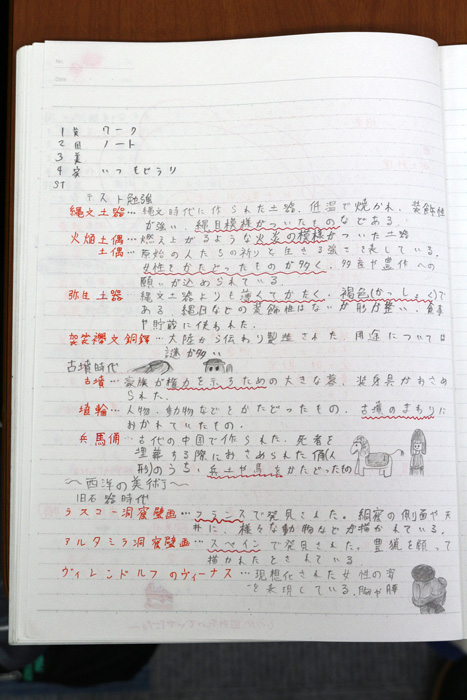 1 英 ワーク
2 国 ノート
3 美
4 家 いつもどうり
ST
テスト勉強
縄文土器…縄文時代に作られた土器。低温で焼かれ、装飾性
が強い、縄目模様がついたものなどある。
火焔土偶…燃え上がるような火炎の模様がついた土器
土偶…原始の人たちの祈りと生きる強さを表している。
女性をかたどったものが多く、多産や豊作への
願いが込められている。
弥生土器 縄文土器よりも薄くてかたく、褐色(かっしょく)で
ある 縄目などの装飾性はないが形が整い、食事
や貯蔵に使われた。
袈裟襷文銅鐸…大陸から伝わり製造された 用途については
謎が多い
古墳時代
古墳…豪族が権力を示すための大きな墓、装身具がおさめ
られた。
埴輪…人物、動物などをかたどったもの。古墳のまわりに
おかれていたもの。
兵馬俑…古代の中国で作られた。死者を
埋葬する際におさめられた俑(人
形)のうち、兵士や馬をかたどったもの
〜西洋の美術〜
旧石器時代
ラスコー洞窟壁画…フランスで発見された。洞窟の側面や天
井に、様々な動物などが描かれている。
アルタミラ洞窟壁画…スペインで発見された。豊猟を願って
描かれたとされている
ヴィレンドルフのヴィーナス…理想化された女性の姿
を表現している。胸や腰